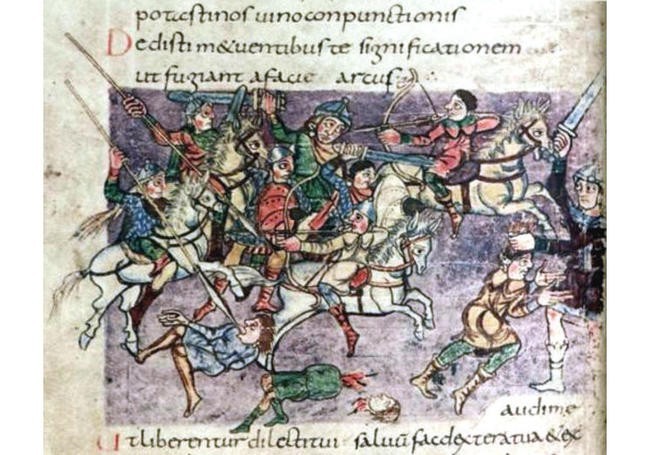 potasti nos vino conpunctionis
Dedisti metuentibus te significationem
ut fugiant a facie arcus
audi me
Ut liberentur dilecti tui salvum fac dextera tua & ex